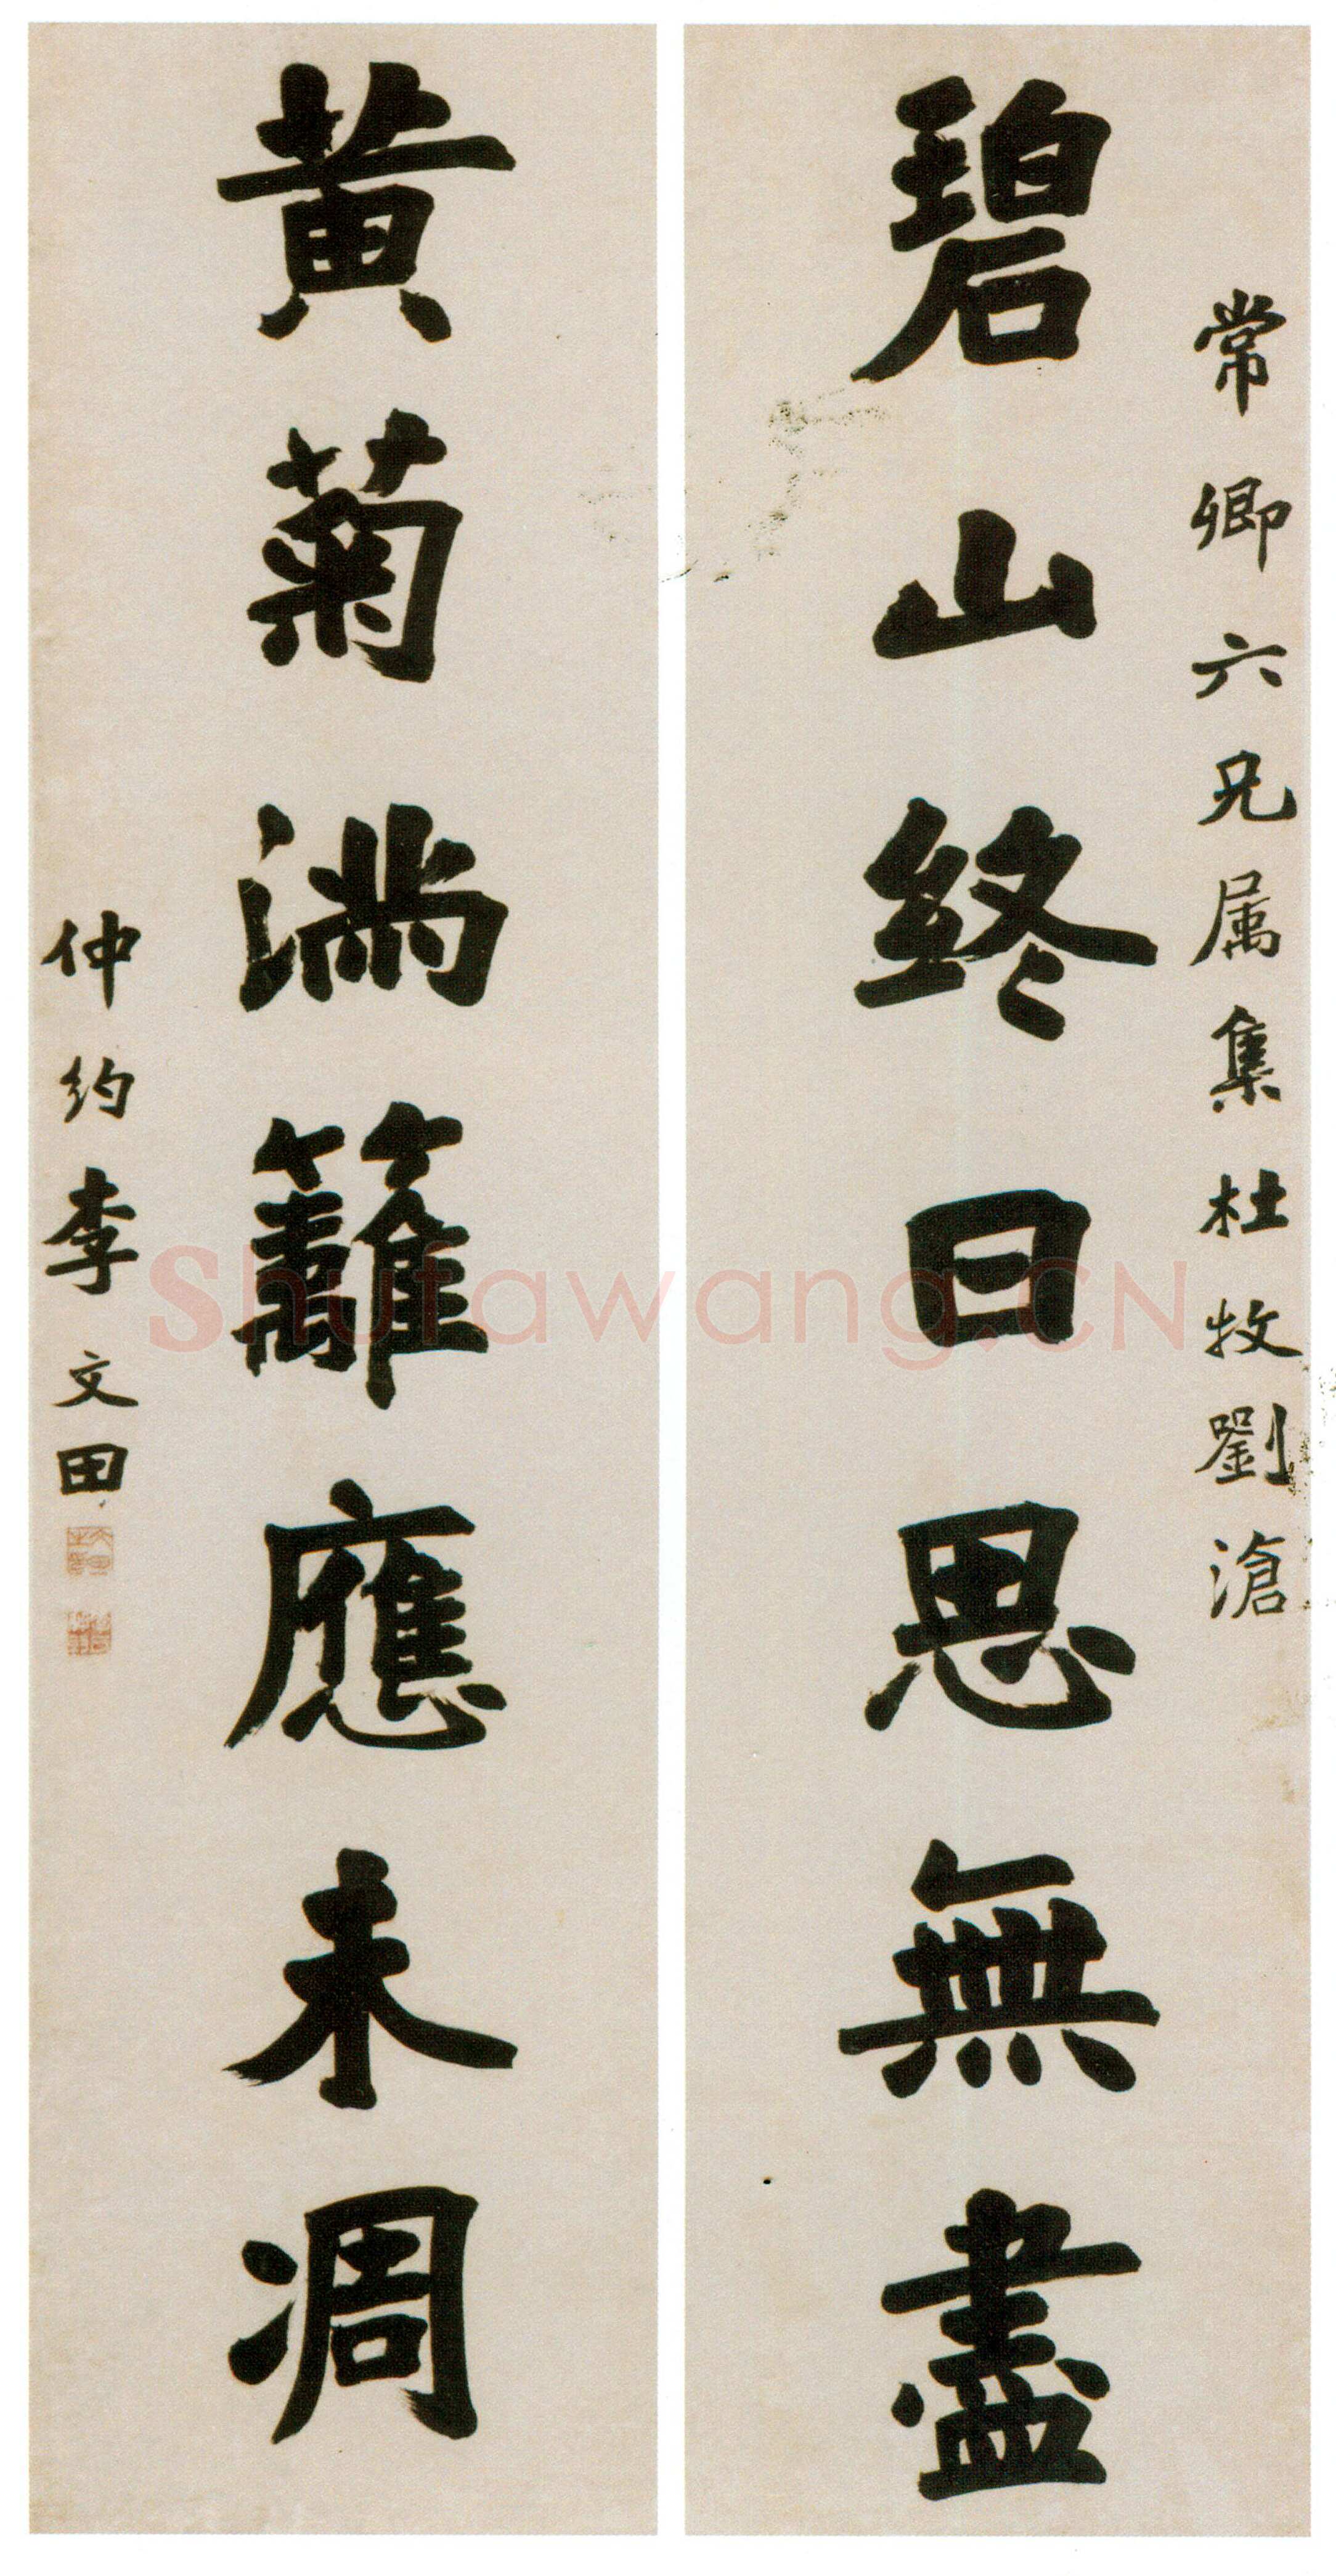 常卿六兄属集杜牧劉滄
碧山終日思無盡
黃菊滿籬應未凋
仲約李文田
shufawang.CN